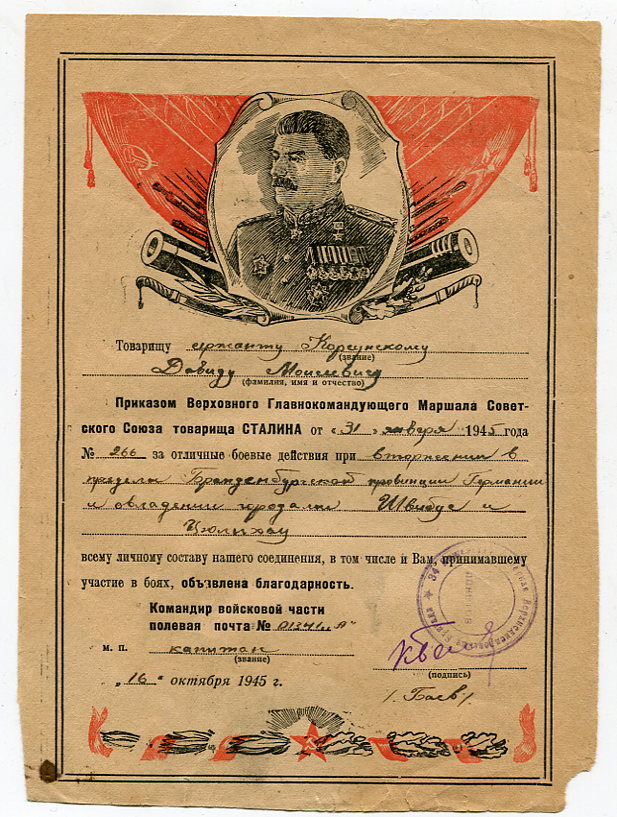 Товарищу сержанту Корсунскому
(звание)
Давиду Моисеевичу
(фамилия, имя и отчество)
Приказом Верховного Главнокомандующего Маршала Совет-
ского Союза товарища СТАЛИНА от «31» января 1945 года
№ 266 за отличные боевые действия при вторжении в
пределы Бранденбургской провинции Германии
и овладении городами Швибус и
Цюлихау
всему личному составу нашего соединения, в том числе и Вам, принимавшему
участие в боях, объявлена благодарность.
Командир войсковой части
полевая почта № 01341 „Я"
м. п. капитан
(звание)
(подпись)
„16" октября 1945 г.
/Баев/